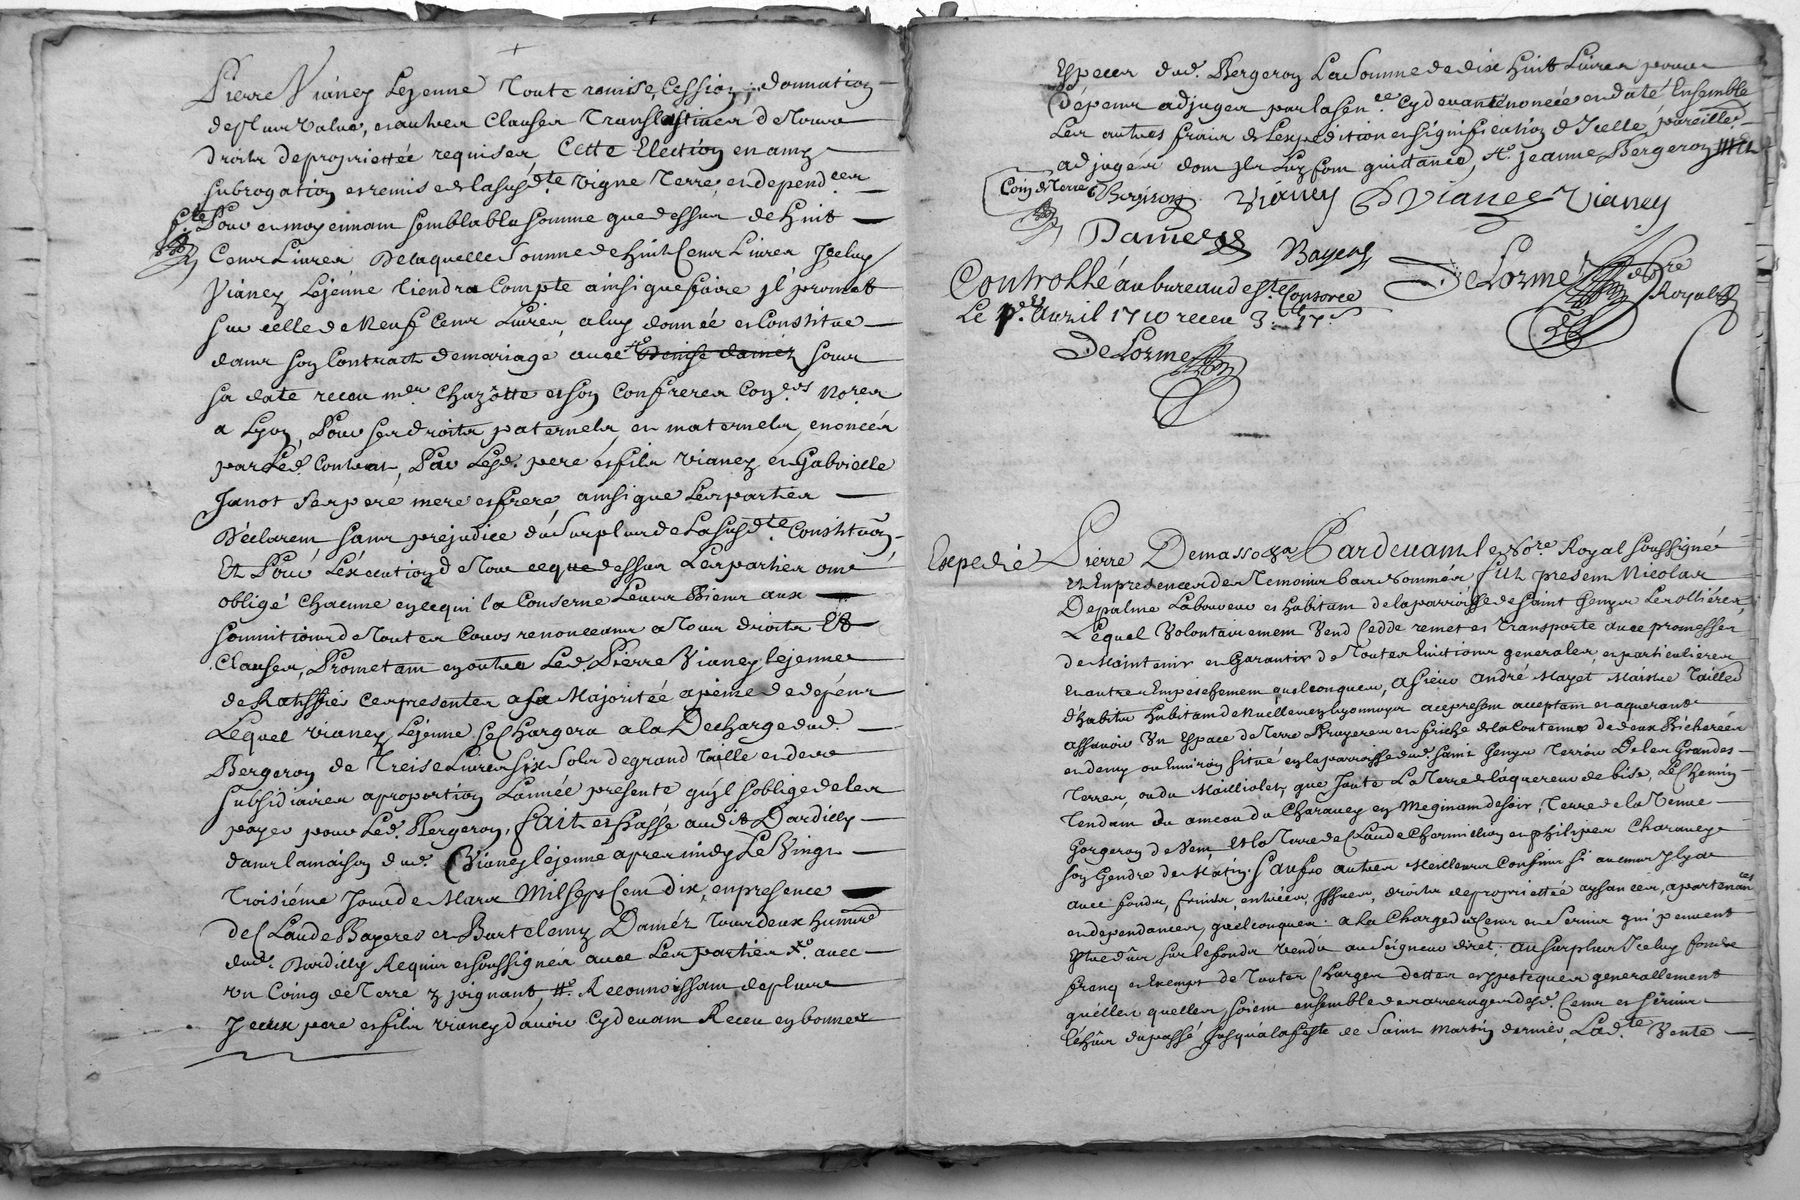 Pierre Vianey Lejeune Toute remise, Cession, donnation
de plus value, et autres Clauses Translatives de Tous
droits de proprietée requises, Cette Election en amy
subrogation et remise de la susdte vigne Terre, et dependces
Pour et moyennant semblable somme que dessus de huit
Cent Livres De laquelle Somme de huit Cent Livres Jceluy
Vianey Lejeune tiendra Compte ainsi que faire jl promet
sur celle de Neuf Cent Livres, a luy donnée et Constitue
dans son Contract de mariage avec Denise daméz sous
sa date receu mes Chazotte et son Confrere Con.ers No.res
a Lyon, Pour ses droits paternels, et maternels, enoncés
par Led. Contrat, Par Lesd. pere et fils Vianey et Gabrielle
Janot ses pere mere et frere, ainsi que Les parties
Déclarent sans prejudice du Surplus de La susdte. Constituon
Et Pour L'éxecution de Tout ce que dessus Les parties ont
obligé Chacune en ce qui la Conserne Leurs Biens aux
soumitions de Toutes Cours renonceant a Tous droits Et
Clauses, Prometant en outre Led. Pierre Vianey lejeune
de Ratiffier ces presentes a sa Majoritée a peine de dépens
Lequel Vianey Lejeune se Chargera a la Decharge dud.
Bergeron de Treise Livres six Sols de grand Taille et des
subsidiaires a proportion L'année presente qu'jl s'oblige de les
payer pour Led. Bergeron, fait et Passé audit Dardilly
dans la maison dud. Vianey lejeune apres midy Le Vingt
Troisiéme Jour de Mars Mil Sept Cent dix, en presence
de Claude Bayeres et Bartelemy Daméz Tous deux
dud. Dardilly Requis et soussignés avec Les parties avec
un Coing de Terre y joignant, Reconnoissant de plus
Jceux pere et fils Vianey d'avoir Cy devant Receu en bonnes
Especes dud. Bergeron La Somme de dix huit Livres pour
dépens adjuges par la sence Cy devant énoncée et daté Ensemble
Les autres frais de L'expedition et signification d'Jcelle pareillt
adjugés dont jls Luy font quittance, Jeanne Bergeron
Coin de Terre Bergeron Vianey P Vianey Vianey
Daméz Bayere
Controllé au bureau de St Consorce DeLorme No.re Royal
Le Avril 1710 receu 3
DeLorme
Expedié Pierre Demasso Pardevant le No.re Royal soussigné
et En presence des Temoins bas nommés fut present Nicolas
Depalme Laboureur et habitant de la parroisse de Saint Genys Les ollieres,
Lequel Volontairement Vend Cedde remet et Transporte avec promesse
de Maintenir et Garantir de Toutes Evictions generales, et particulieres
et autres Empeschement quelconques, a sieur André Mayet Maistre Tailleur
d'habits habitant de en Lyonnoys acy present acceptant et aquerant
assavoir Un Espace de Terre Bruyere et en friche de la Contenue de deux Bicherées
et demy ou Environ situé en la parroisse dud. Saint Genys Terroir De les Grandes
Terres, ou du Mailliolet, que Joute La Terre de laquereur de bise, Le Chemin
Tendant du ameau du Charavey en Meginant de soir, Terre de la Veuve
Gorgeron de Vent, Et la Terre de Claude Chermillon et philipes Charavey
son Gendre de Matin, sauf ses autres Meilleurs Confins si aucuns Jl y a
avec fonds, fruits, entrées, Jssues, droits de proprietée aysances, apartenances
et dependances quelconques. a la Charge du Cens et Servis qui peuvent
Etre dûs sur le fonds Vendu au Seigneur diret. au surplus Jceluy fonds
franq et Exempt de Toutes Charges dettes et ypoteques generallement
quelles quelles soient ensemble des arrerages desd. Cens et servis
Echûs du passé Jusqu'a la feste de Saint Martin dernier, Ladte. Vente